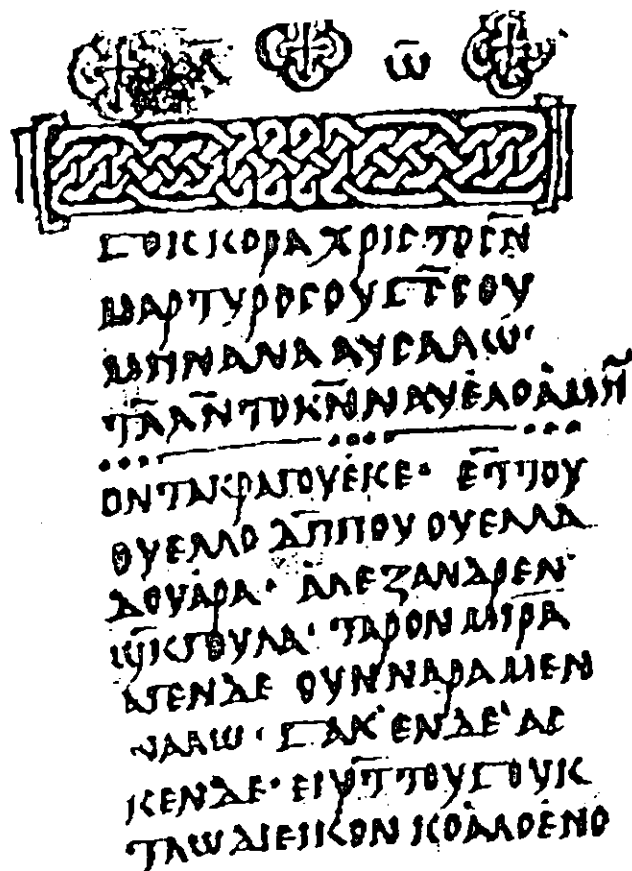 ⲁ̄ ⲱ̄
ⳟⲟⲕⲕⲟⲣⲁ ⲭⲣⲓⲥⲧⲟⲥⲛ̄
ⲙⲁⲣⲧⲩⲣⲟⲥⲟⲩ ⳟⲥ̄ⲥⲟⲩ
ⲙⲏⲛⲁⲛⲁ ⲁⲩⲥⲁⲗⲱ·
ⲧⲁ̄ⲁⲛ̄ ⲧⲟⲕⲛ̄ⲛⲁⲩⲉⲗⲟ ⲁ̇ⲙⲏⲛ̄
ⲟⲛ ⲧⲁⲕⲣⲁⲅⲟⲩⲉ̇ⲕⲉ· ⲉⲓⲧ̄ⳝⲟⲩ
ⲟⲩⲉⲗⲗⲟ ⲇⲡ̄ⲡⲟⲩ ⲟⲩⲉⲗⲗⲁ
ⲇⲟⲩⲁ̇ⲣⲁ· ⲁ̇ⲗⲉⲝⲁⲛⲇⲣⲉⲛ
ϣⲓⲕ̄ⲅⲟⲩⲗⲁ· ⲧⲁⲣⲟⲛ ⲙⲓ̄ⲣⲁ
ⲁⲅⲉⲛⲇⲉ ⲟⲩⲛⲛⲁⲣⲁ ⲙⲉⲛ
ⲛⲁⲗⲱ· ⳟⲁⲕ ⲉⲛⲇⲉ ⲁⲥ
ⲕⲉⲛⲇⲉ· ⲉⲓⲩⲧ̄ⲧⲟⲩ ⳟⲟⲩⲕ
ⲧⲗⲱ ⲇⲓⲉⲓⲕⲟⲛ ⲕⲟⲁ̇ⲗⲟ ⲉ̇ⲛⲟ